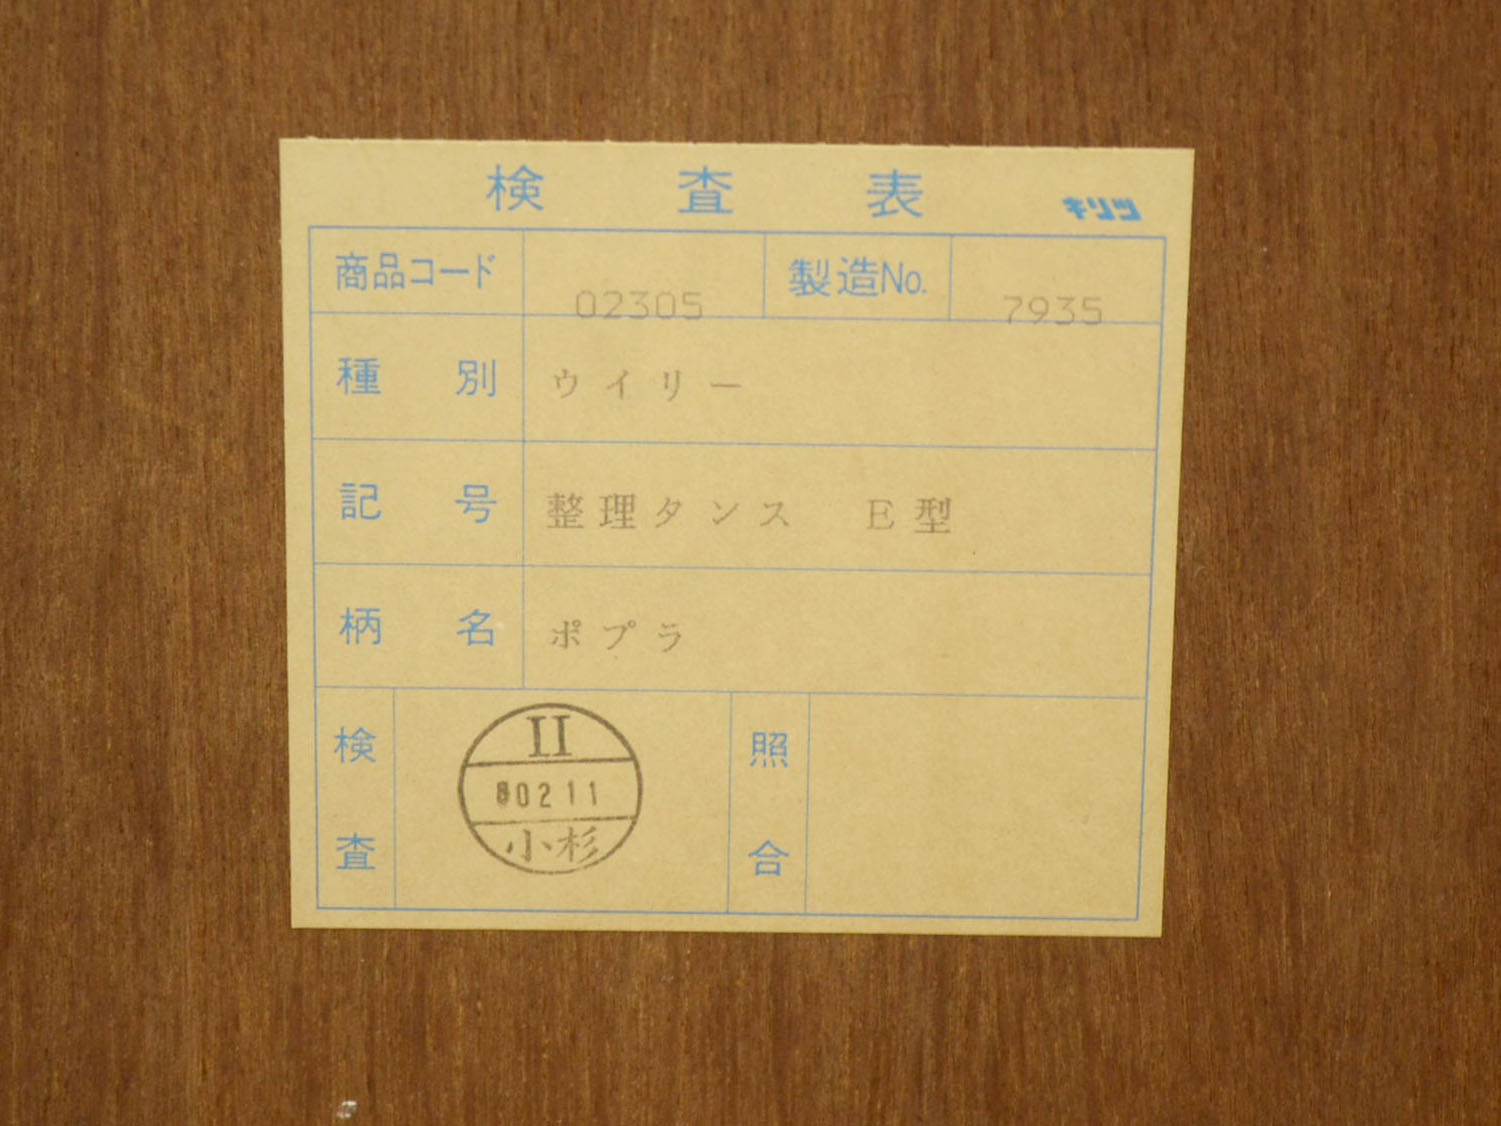 検 査 表 キリツ
商品コード 02305 製造No. 7935
種 別 ウイリー
記 号 整理タンス E型
柄 名 ポプラ
検 査
II
80211
小杉
照 合